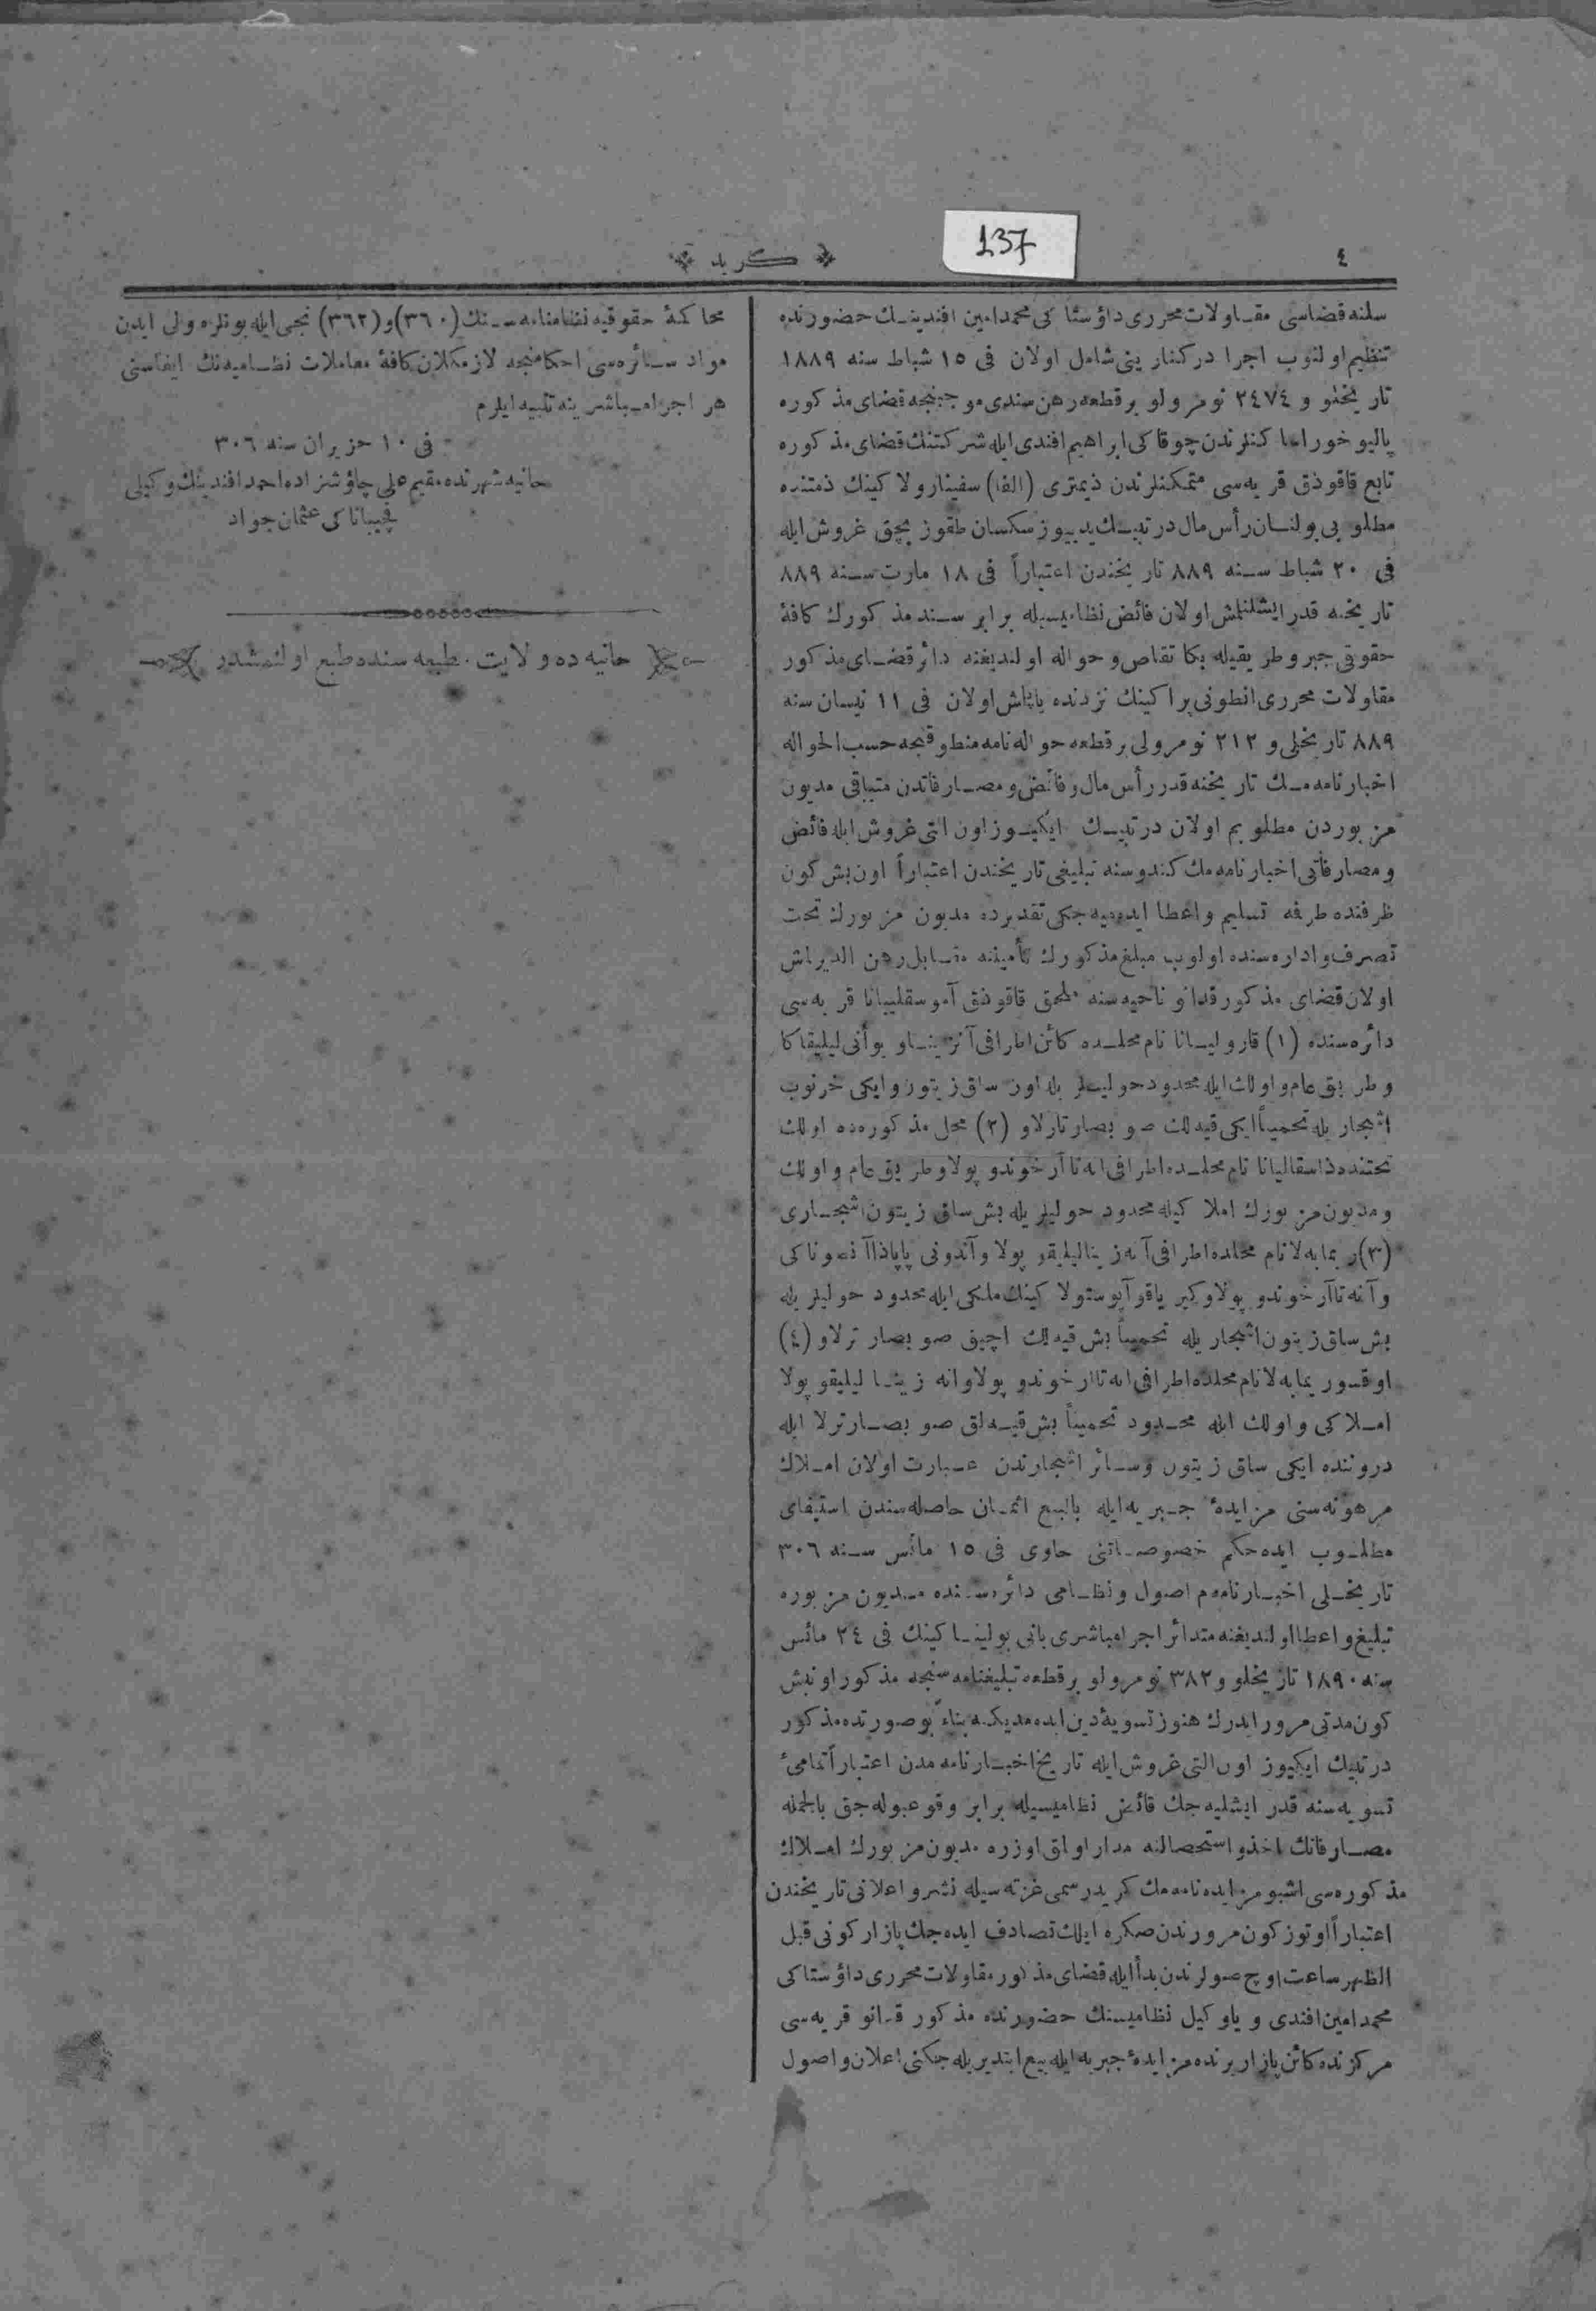 ٤
137
❊ كريد ❊
سلنه قضاسى مقاولات محررى داؤستا كى محمد امين افندينك حضورنده
تنظيم اولنوب اجرا دركنارينى شامل اولان فى ١٥ شباط سنه ١٨٨٩
تاريخلو و ٢٤٧٤ نومرولو بر قطعه رهن سندى موجبنجه قضاى مذكوره
پاليو خورا ساكنلرندن چوقاكى ابراهيم افندى ايله شركتنك قضاى مذكوره
تابع قاقوذق قريه‌سى متمكنلرندن ذيمترى (الفا) سفينارولاكينك ذمتنده
مطلوبى بولنان رأس مال درتبيك يديوز سكسان طقوز بچق غروش ايله
فى ٢٠ شباط سنه ٨٨٩ تاريخندن اعتباراً فى ١٨ مارت سنه ٨٨٩
تاريخنه قدر ايشلنلمش اولان فائض نظاميسيله برابر سند مذكورك كافۀ
حقوقى جبر وطريقيله بكا تقاص و حواله اولنديغنه دائر قضاى مذكور
مقاولات محررى انطونى پراكينك نزدنده ياپلمش اولان فى ١١ نيسان سنه
٨٨٩ تاريخلى و ٢١٢ نومرولى بر قطعه حواله‌نامه منطوقنجه حسب الحواله
اخبارنامه‌مك تاريخنه قدر رأس مال و فائض و مصارفاتدن متباقى مديون
مزبوردن مطلوبم اولان درتبيك ايكيوز اون التى غروش ايله فائض
و مصارفاتى اخبارنامه‌مك كندوسنه تبليغى تاريخندن اعتباراً اون بش كون
ظرفنده طرفه تسليم و اعطا ايده‌ميه‌جكى تقديرده مديون مزبورك تحت
تصرف و اداره‌سنده اولوب مبلغ مذكورك تأمينه مقابل رهن الديرلمش
اولان قضاى مذكور قدانو ناحيه‌سنه ملحق قاقوذق آموسقليبانا قريه‌سى
دائره‌سنده (١) قاروليانا نام محلده كائن اطرافى آنزينا و يوأنى ليليقاكا
وطريق عام و اولك ايله محدود حوليلريله اون ساق زيتون و ايكى خرنوب
اشجاريله تحميناً ايكى قيه‌لك صو بصار تارلا و (٢) محل مذكوره‌ده اولك
تحتنده ذاسقاليانا نام محلده اطرافى انه‌تا آرخوندو پولا وطريق عام و اولك
و مديون مزبورك املاكيله محدود حوليلريله بش ساق زيتون اشجارى
(٣) ريمابه‌لا نام محلده اطرافى آنه زينا ليليقو پولا و آندونى پاپاذا آنه‌وناكى
و آنه‌تا آرخوندو پولا و كير ياقو آپوستولاكينك ملكى ايله محدود حوليلريله
بش ساق زيتون اشجاريله تحميناً بش قيه‌لك اچيق صو بصار ترلا و (٤)
اوقسو ريمابه‌لا نام محلده اطرافى انه‌تا ارخوندو پولا و انه زينا ليليقو پولا
املاكى و اولك ايله محدود تحميناً بش قيه‌لق صو بصار ترلا ايله
دروننده ايكى ساق زيتون و سائر اشجارندن عبارت اولان املاك
مرهونه‌سنى مزايدۀ جبريه ايله بالبيع اثمان حاصله‌سندن استيفاى
مطلوب ايده‌جكم خصوصاتنى حاوى فى ١٥ مائس سنه ٣٠٦
تاريخلى اخبارنامه‌م اصول و نظامى دائره‌سنده مديون مزبوره
تبليغ و اعطا اولنديغنه متدائر اجرا مباشرى يانى بوليناكينك فى ٢٤ مائس
سنه ١٨٩٠ تاريخلو و ٣٨٢ نومرولو بر قطعه تبليغنامه‌سنجه مذكور اونبش
كون مدتى مرور ايدرك هنوز تسويۀ دين ايده‌مديكنه بناءً بو صورتده مذكور
درتبيك ايكيوز اون التى غروش ايله تاريخ اخبارنامه‌مدن اعتباراً تمامئ
تسويه‌سنه قدر ايشليه‌جك فائض نظاميسيله برابر وقوعبوله‌جق بالجمله
مصارفاتك اخذ و استحصالنه مدار اولمق اوزره مديون مزبورك املاك
مذكوره‌سى اشبو مزايده‌نامه‌مك كريد رسمى غزته‌سيله نشر و اعلانى تاريخندن
اعتباراً اوتوز كون مرورندن صكره ايلك تصادف ايده‌جك پازار كونى قبل
الظهر ساعت اوچ صولرندن بدأ ايله قضاى مذكور مقاولات محررى داؤستاكى
محمد امين افندى و ياوكيل نظاميسنك حضورنده مذكور قدانو قريه‌سى
مركزنده كائن پازار يرنده مزايدۀ جبريه ايله بيع ايتديريله‌جكنى اعلان و اصول
محاكمۀ حقوقيه نظامنامه‌سنك (٣٦٠) و (٣٦٢) نجى ايله بونلره ولى ايدن
مواد سائره‌سى احكامنجه لازمكلان كافۀ معاملات نظاميه‌نك ايفاسنى
هر اجرا مباشرينه تنبيه ايلرم
فى ١٠ حزيران سنه ٣٠٦
حانيه شهرنده مقيم على چاؤش زاده احمد افندينك وكيلى
عثمان جواد
حانيه ده ولايت مطبعه سنده طبع اولنمشدر